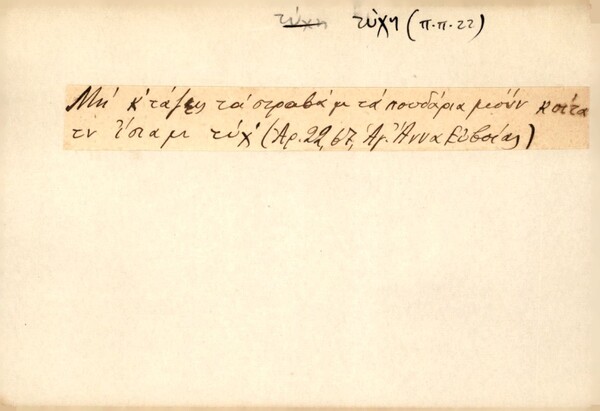 τύχη τύχη (π.π.22)
Μή κ'τάζης τά στραβά μ τά πουδάρια μούν κοίτα
τν ίσια μ τύχ' (Αρ.22, 67, Αγ. Άννα Εύβοίας)